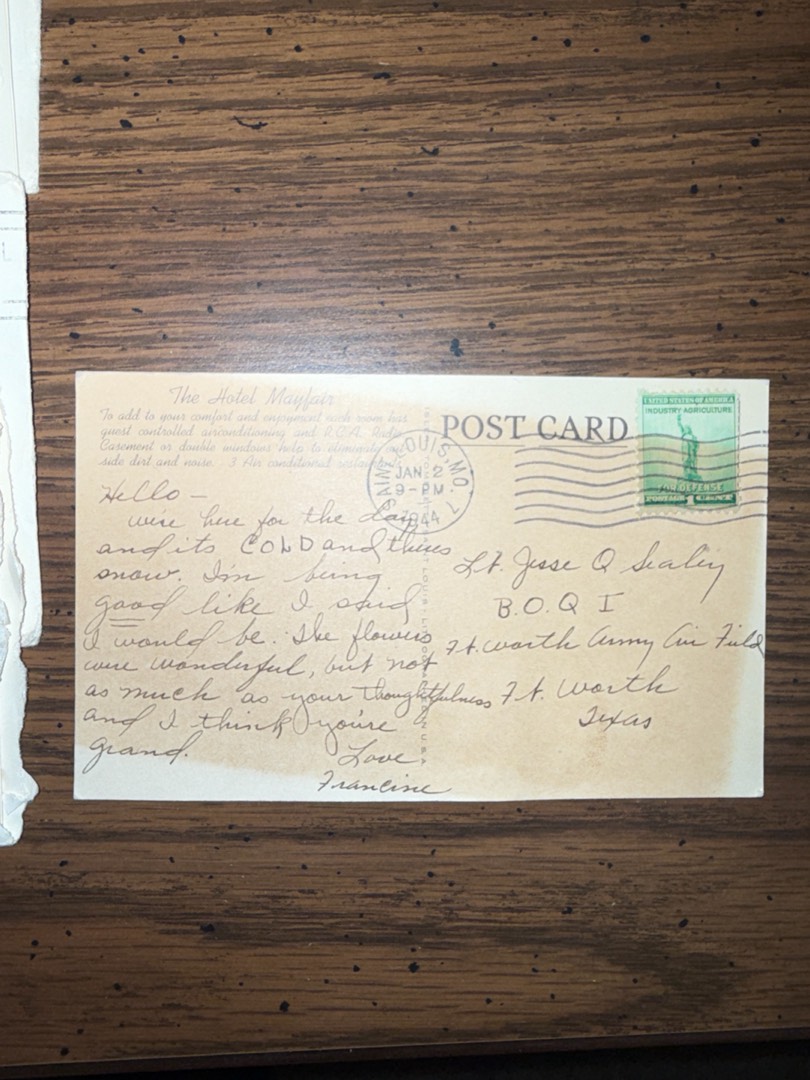 The Hotel Mayfair
To add to your comfort and enjoyment each room has
guest controlled airconditioning and R.C.A. Radio
Casement or double windows help to eliminate
side dirt and noise. 3 Air conditioned restaurants
POST CARD
UNITED STATES OF AMERICA
INDUSTRY AGRICULTURE
FOR DEFENSE
POSTAGE 1 CENT
SAINT LOUIS, MO. 7
JAN 2
9-PM
1944
Hello –
we're here for the day
and its COLD and theres
snow. I'm being
good like I said
I would be. The flowers
were wonderful, but not
as much as your thoughtfulness
and I think you're
grand.
Love
Francine
Lt. Jesse Q Sealey
B.O.Q I
Ft. Worth Army Air Field
Ft. Worth
Texas